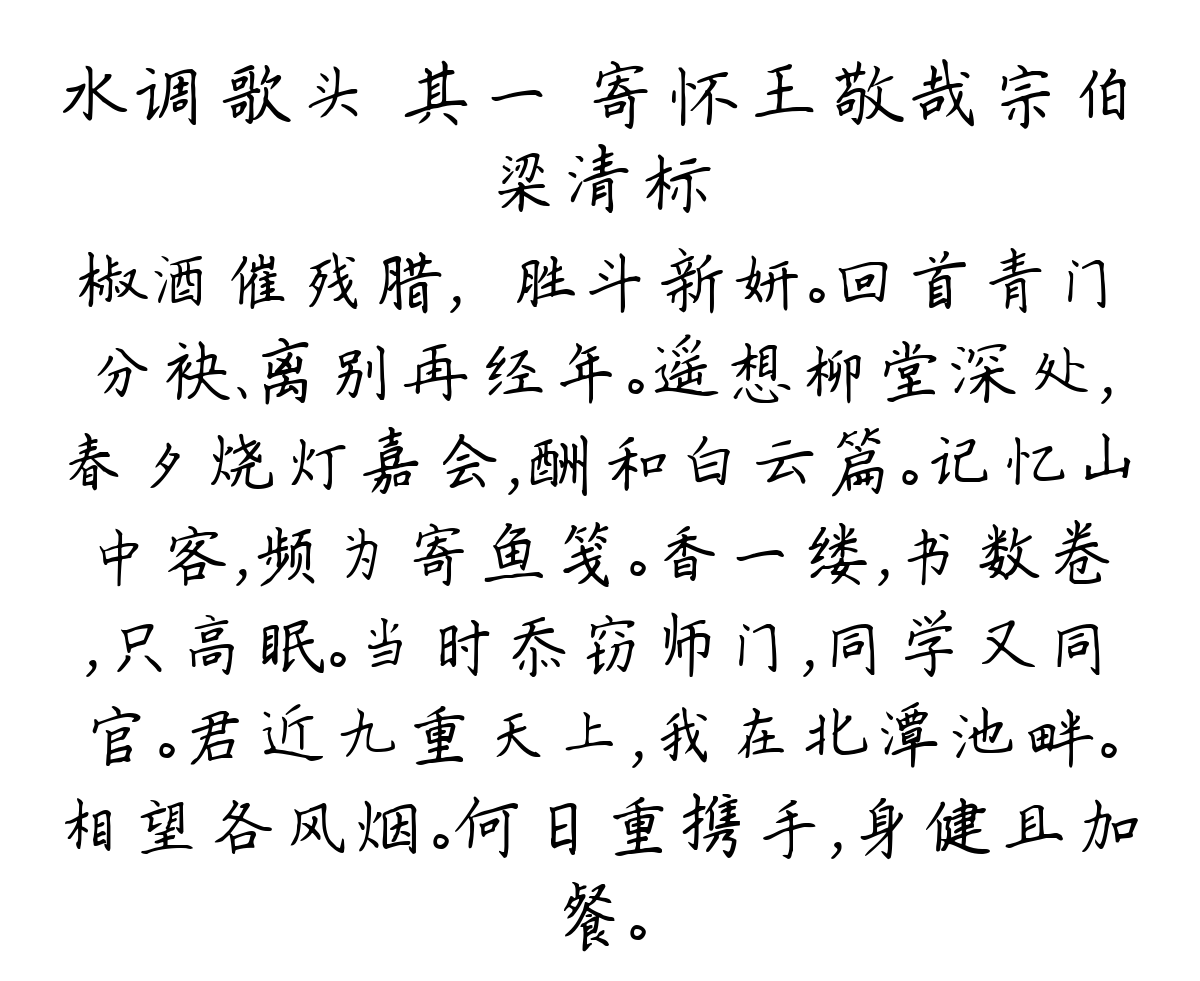 水调歌头 其一 寄怀王敬哉宗伯
梁清标
椒酒催残腊，胜斗新妍。回首青门
分袂、离别再经年。遥想柳堂深处，
春夕烧灯嘉会，酬和白云篇。记忆山
中客，频为寄鱼笺。香一缕，书数卷
，只高眠。当时忝窃师门，同学又同
官。君近九重天上，我在北潭池畔。
相望各风烟。何日重携手，身健且加
餐。